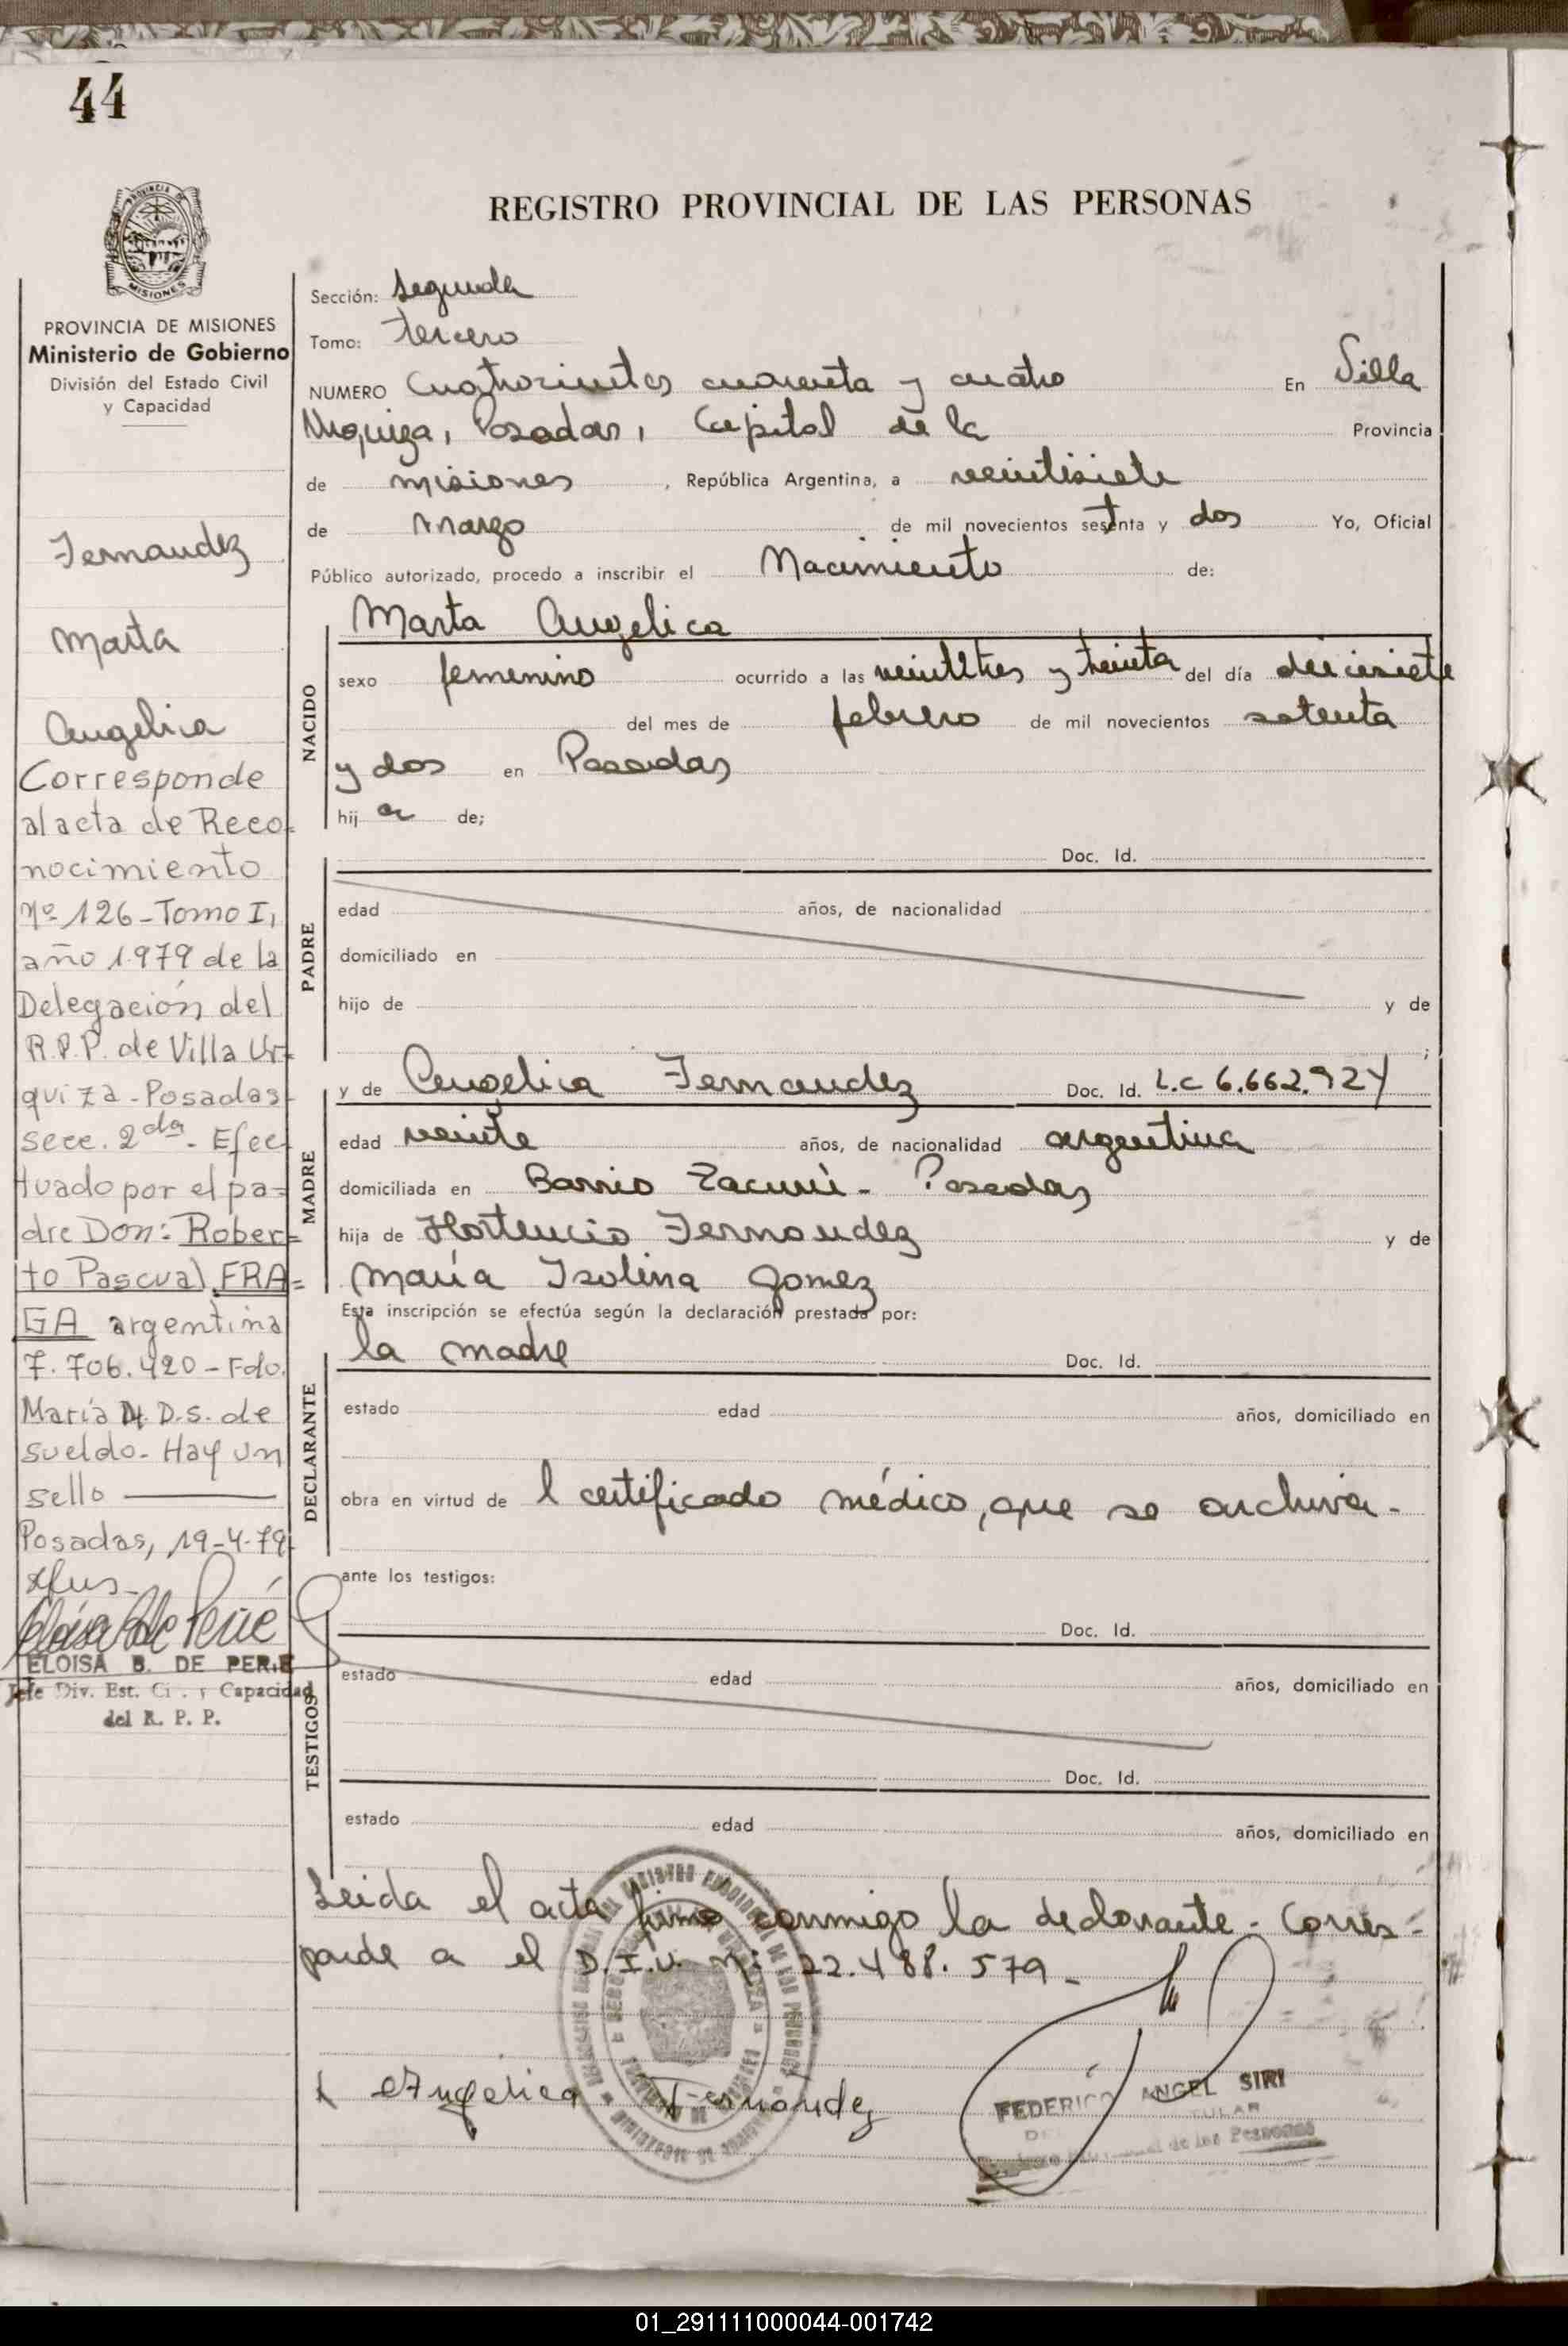 44
REGISTRO PROVINCIAL DE LAS PERSONAS
PROVINCIA DE MISIONES
Ministerio de Gobierno
División del Estado Civil
y Capacidad
Fernandez
Marta
Angelica
Corresponde
al acta de Reco-
nocimiento
Nº 126-Tomo I,
año 1.979 de la
Delegación del
R.P.P. de Villa Ur-
quiza-Posadas-
secc. 2da- Efec-
tuado por el pa-
dre Don: Rober-
to Pascual FRA=
GA argentina
7.706.420-Fdo.
María D.S. de
sueldo- Hay un
sello
Posadas, 19-4-79
ELOISA B. DE PERIE
Jefe Div. Est. Ci . y Capacidad
del R. P. P.
Sección: segunda
Tomo: tercero
NUMERO Cuatrocientos cuarenta y cuatro En Villa
Urquiza, Posadas, Capital de la Provincia
de misiones, República Argentina, a veintisiete
de marzo de mil novecientos setenta y dos Yo, Oficial
Público autorizado, procedo a inscribir el Nacimiento de:
NACIDO
Marta Angelica
sexo femenino ocurrido a las veintitres y treinta del día diecisiete
del mes de febrero de mil novecientos setenta
y dos en Posadas
hij a de;
PADRE
Doc. Id.
edad años, de nacionalidad
domiciliado en
hijo de y de
;
MADRE
y de Angelica Fernandez Doc. Id. L.C 6.662.924
edad veinte años, de nacionalidad argentina
domiciliada en Barrio - Posadas
hija de Hortencio Fernandez y de
María Isolina Gomez
Esta inscripción se efectúa según la declaración prestada por:
DECLARANTE
la madre Doc. Id.
estado edad años, domiciliado en
obra en virtud de l certificado médico, que se archiva.-
ante los testigos:
TESTIGOS
Doc. Id.
estado edad años, domiciliado en
Doc. Id.
estado edad años, domiciliado en
Leida el acta firma conmigo la declarante.- Corres-
ponde a el D.I.U. Nº 22.488.579-
Angelica Fernandez
FEDERICO ANGEL SIRI
TULAR
de las Personas
01_291111000044-001742